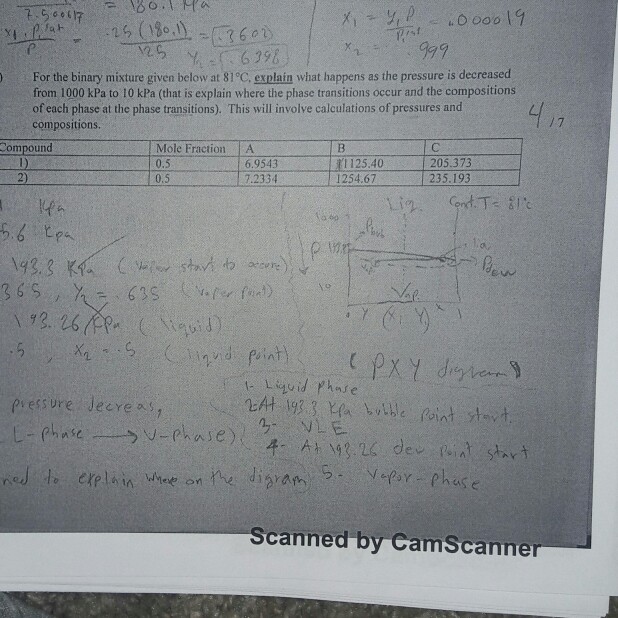 7.500617 = 180.1 kPa
x1 . P1sat / P = .25 (180.1) / 125 = .3602
Y2 = .6398
X1 = y1 P / P1sat = .000019
X2 = .999
For the binary mixture given below at 81°C, explain what happens as the pressure is decreased
from 1000 kPa to 10 kPa (that is explain where the phase transitions occur and the compositions
of each phase at the phase transitions). This will involve calculations of pressures and
compositions.
4/17
Compound Mole Fraction A B C
1) 0.5 6.9543 1125.40 205.373
2) 0.5 7.2334 1254.67 235.193
kPa
5.6 kpa
193.3 kPa (vapor start to occure)
365, Y2 = .635 (vapor point)
193.26 kPa (liquid)
.5, X2 = .5 (liquid point)
Liq. Const. T = 81°c
1000
P
10
Vap.
(X, Y)
(PXY digream)
1- Liquid phase
pressure decreas, 2- At 193.3 kpa bubble point start.
L-phase → V-phase) 3- VLE
4- At 193.26 dew point start
ned to explain where on the digram 5- vapor-phase
Scanned by CamScanner